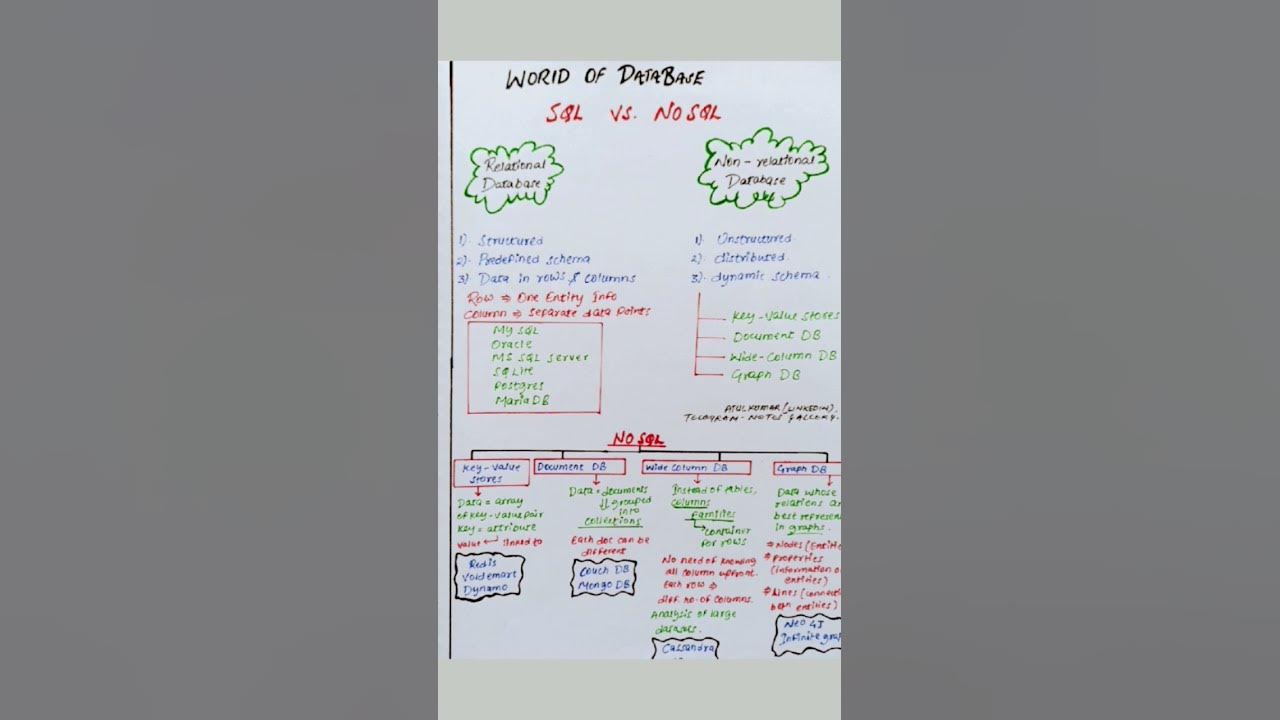 WORLD OF DATABASE
SQL VS. NOSQL
Relational
Database
1). Structured
2). Predefined schema
3). Data in rows & columns
Row ⇒ One Entity Info
Column ⇒ separate data points
My SQL
Oracle
MS SQL Server
SQ Lite
Postgres
Maria DB
Non-relational
Database
1). Unstructured
2). distributed.
3). dynamic schema.
Key-value stores
Document DB
Wide-Column DB
Graph DB
ATUL KUMAR (LINKEDIN).
TELEGRAM - NOTES GALLERY.
NO SQL
Key-value
stores
Data = array
of key-value pair
key = attribute
value linked to
Redis
Voldemart
Dynamo
Document DB
Data = documents
grouped
into
collections
Each doc can be
different
Couch DB
Mongo DB
Wide Column DB
Instead of tables,
columns
families
container
for rows
No need of knowing
all column upfront.
Each row ⇒
diff. no. of columns.
Analysis of large
datasets.
Cassandra
Graph DB
Data whose
relations
best
in graphs.
Nodes
properties
(information
entities)
Lines
betn entities)
Neo 4J
Infinite